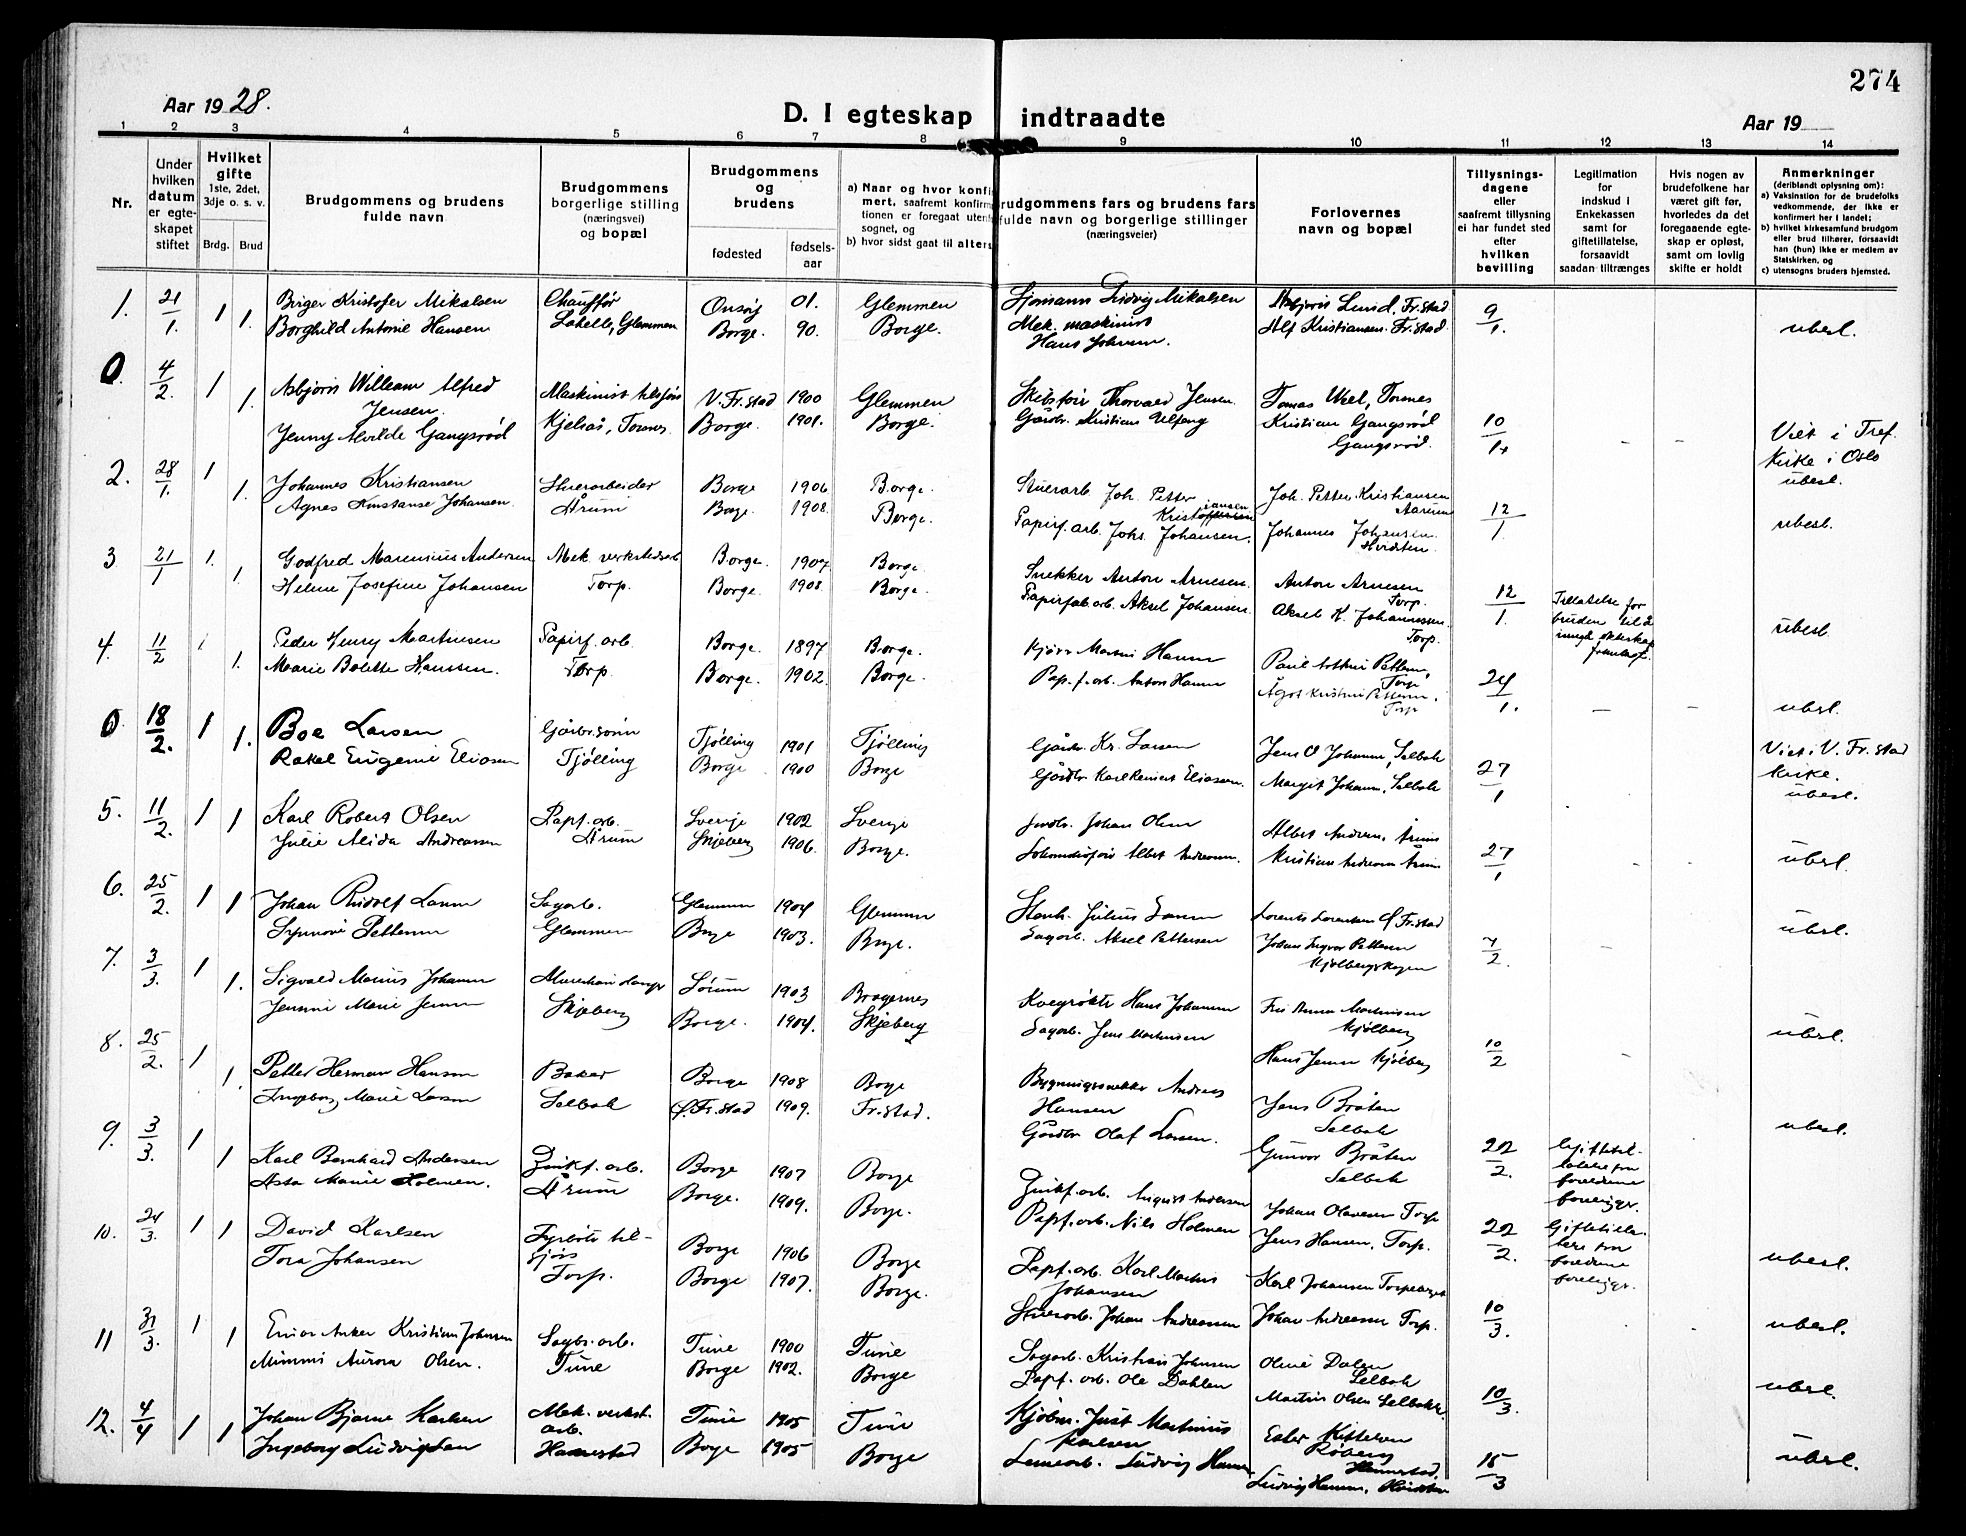 274
Aar 1928.
D. I egteskap indtraadte
Aar 19
1 2 3 4 5 6 7 8 9 10 11 12 13 14
Nr.
Under hvilken datum er egteskapet stiftet
Hvilket gifte 1ste, 2det, 3dje o. s. v.
Brdg. Brud
Brudgommens og brudens fulde navn
Brudgommens borgerlige stilling (næringsvei) og bopæl
Brudgommens og brudens
fødested fødselsaar
a) Naar og hvor konfirmert, saafremt konfirmationen er foregaat utenfor sognet, og
b) hvor sidst gaat til alters
Brudgommens fars og brudens fars fulde navn og borgerlige stillinger (næringsveier)
Forlovernes navn og bopæl
Tillysningsdagene eller saafremt tillysning ei har fundet sted efter hvilken bevilling
Legitimation for indskud i Enkekassen samt for giftetillatelse, forsaavidt saadan tiltrænges
Hvis nogen av brudefolkene har været gift før, hvorledes da det foregaaende egteskap er opløst, samt om lovlig skifte er holdt
Anmerkninger
(deriblandt oplysning om):
a) Vaksination for de brudefolks vedkommende, der ikke er konfirmert her i landet;
b) hvilket kirkesamfund brudgom eller brud tilhører, forsaavidt han (hun) ikke er medlem av Statskirken, og
c) utensogns bruders hjemsted.
1. 21/1. 1 1. Birger Kristofer Mikalsen Chauffør Onsøy 01. Glemmen Sjømann Ludvig Mikalsen Asbjørn Lund, Fr.stad 9/1.
Borghild Antonie Hansen Glemmen Borge. 90. Borge. Mek. maskinist Hans Johnsen. Alf Kristiansen. Fr.stad. ubesl.
0. 4/2. 1 1. Asbjørn William Alfred Jensen. Maskinist tilsjøs V. Fr.stad 1900 Glemmen Skibsfør. Thorvald Jensen. Tomas
Jenny Alvilde Gangsrød Kjelsås, Borge. 1901. Borge. Gårdbr. Kristian Kristian Gangsrød Gangsrød. 10/1. - - Viet i Tref. kirke i Oslo ubesl.
2. 28/1. 1 1. Johannes Kristiansen Stuerarbeider Borge 1906 Borge. Stuerarb. Joh. Petter Kristiansen Joh. Petter Kristiansen Aarum 12/1.
Agnes Konstanse Johansen. Årum Borge. 1908. Borge. Papirf. arb. Johs. Johansen. Johannes Johansen. Hvidsten. ubesl.
3 21/1 1. 1. Godfred Marensius Andersen Mek. verkstedsarb Borge. 1907 Borge. Snekker Anton Arnesen. Anton Arnesen Torp. 12/1.
Helene Josefine Johansen Torp. Borge. 1908. Borge. Papirfab. arb. Aksel Johansen. Aksel K. Johannessen. Torp. Tillatelse for bruden til å inngå ekteskap ubesl.
4. 11/2 1 1. Peder Henry Martinsen Papirf. arb. Borge. 1897 Borge. Martin Paul Torp 24/1.
Marie Bolette Hanssen. Torp. Borge. 1902. Borge. Pap. f. arb. Anton Kristine Torp - - ubesl.
0. 18/2. 1 1. Boe Larsen Gårdbr.sønn Tjølling 1901 Tjølling Gårdbr. Kr. Larsen Jens O Johansen, Selbak 27/1
Rakel Eugenie Eliasen Tjølling Borge 1900 Borge Gårdbr. Karl Reinert Eliassen. Margit Johansen, Selbak Viet i V. Fr.stad kirke. ubesl.
5. 11/2. 1 1 Karl Robert Olsen Papf. arb. Sverige 1902 Sverige Johan Olsen Albert Andreassen, Årum 27/1
Julie Alida Andreassen Årum Skjeberg 1906. Borge. Albert Andreassen. Kristian Andreassen Årum - ubesl.
6. 25/2. 1 1 Johan Rudolf Larsen Sagarb. Glemmen 1904 Glemmen Stenh. Julius Larsen Lorents Lorentsen Fr.stad 7/2.
Synnøve Pettersen Glemmen Borge 1903. Borge. Sagarb. Aksel Pettersen Johan Ingvar Pettersen Kjølbergskogen - ubesl.
7. 3/3. 1 1. Sigvald Marius Johansen Skjeberg Sørum 1903 Bragernes Kvegrøkter Hans Johansen Anna Martinsen Kjølberg 10/2
Jensine Marie Jensen Borge. 1904. Skjeberg Sagarb. Jens Martinsen Hans Jensen Kjølberg ubesl.
8. 25/2. 1 1. Petter Herman Hansen Baker Borge 1908 Borge Bygningssnekker Andreas Hansen Jens Bråten Selbak 22/2.
Ingeborg Marie Larsen Selbak Fr.stad 1909. Fr.stad. Gårdbr Olaf Larsen. Gunvor Bråten Selbak Giftetillatelse fra foreldrene foreligger. ubesl.
9. 3/3. 1 1 Karl Bernhard Andersen Zinkf. arb. Borge 1907 Borge Zinkf. arb. August Andersen Johan Olavesen Torp 22/2.
Asta Marie Holmen. Årum Borge. 1909. Borge. Papf. arb. Nils Holmen Jens Hansen, Torp. Giftetillatelse fra foreldrene foreligger. ubesl.
10. 24/3. 1 1 David Karlsen Fyrbøter tilsjøs Borge 1906 Borge Papf. arb. Karl Martin Johansen Karl Johansen 10/3.
Tora Johansen Torp. Borge 1907. Borge. Stuerarb. Johan Andreassen Johan Andreassen Torp. - ubesl.
11 31/3. 1 1 Einar Anker Kristian Johnsen Sagbr. arb. Tune 1900 Tune Sagarb. Kristian Johnsen Oline Dalen Selbak 10/3.
Mimmi Aurora Olsen. Tune Borge 1902. Borge Papf. arb. Ole Dahlen Martin Olsen Selbak. ubesl.
12. 4/4 1 1 Johan Bjarne Karlsen Mek. verkst. arb. Tune 1905 Tune Kjøbm. Just Martinius Karlsen Ester Kittelsen 15/3
Ingeborg Ludvigsen Borge 1905 Borge Ludvig Hansen Ludvig Hansen, Hvidsten ubesl.